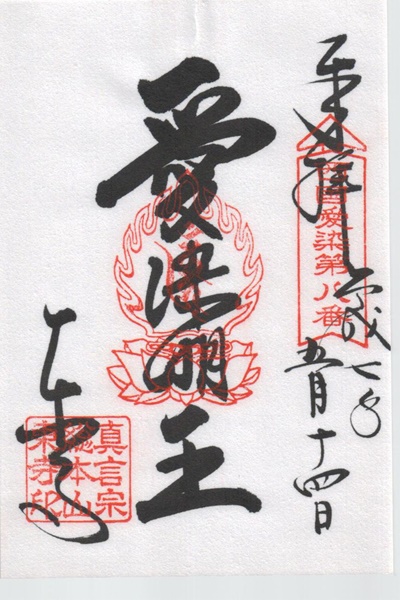 奉拝
西国愛染第八番
平成七年
五月十四日
愛染明王
東寺
真言宗
総本山
東寺印